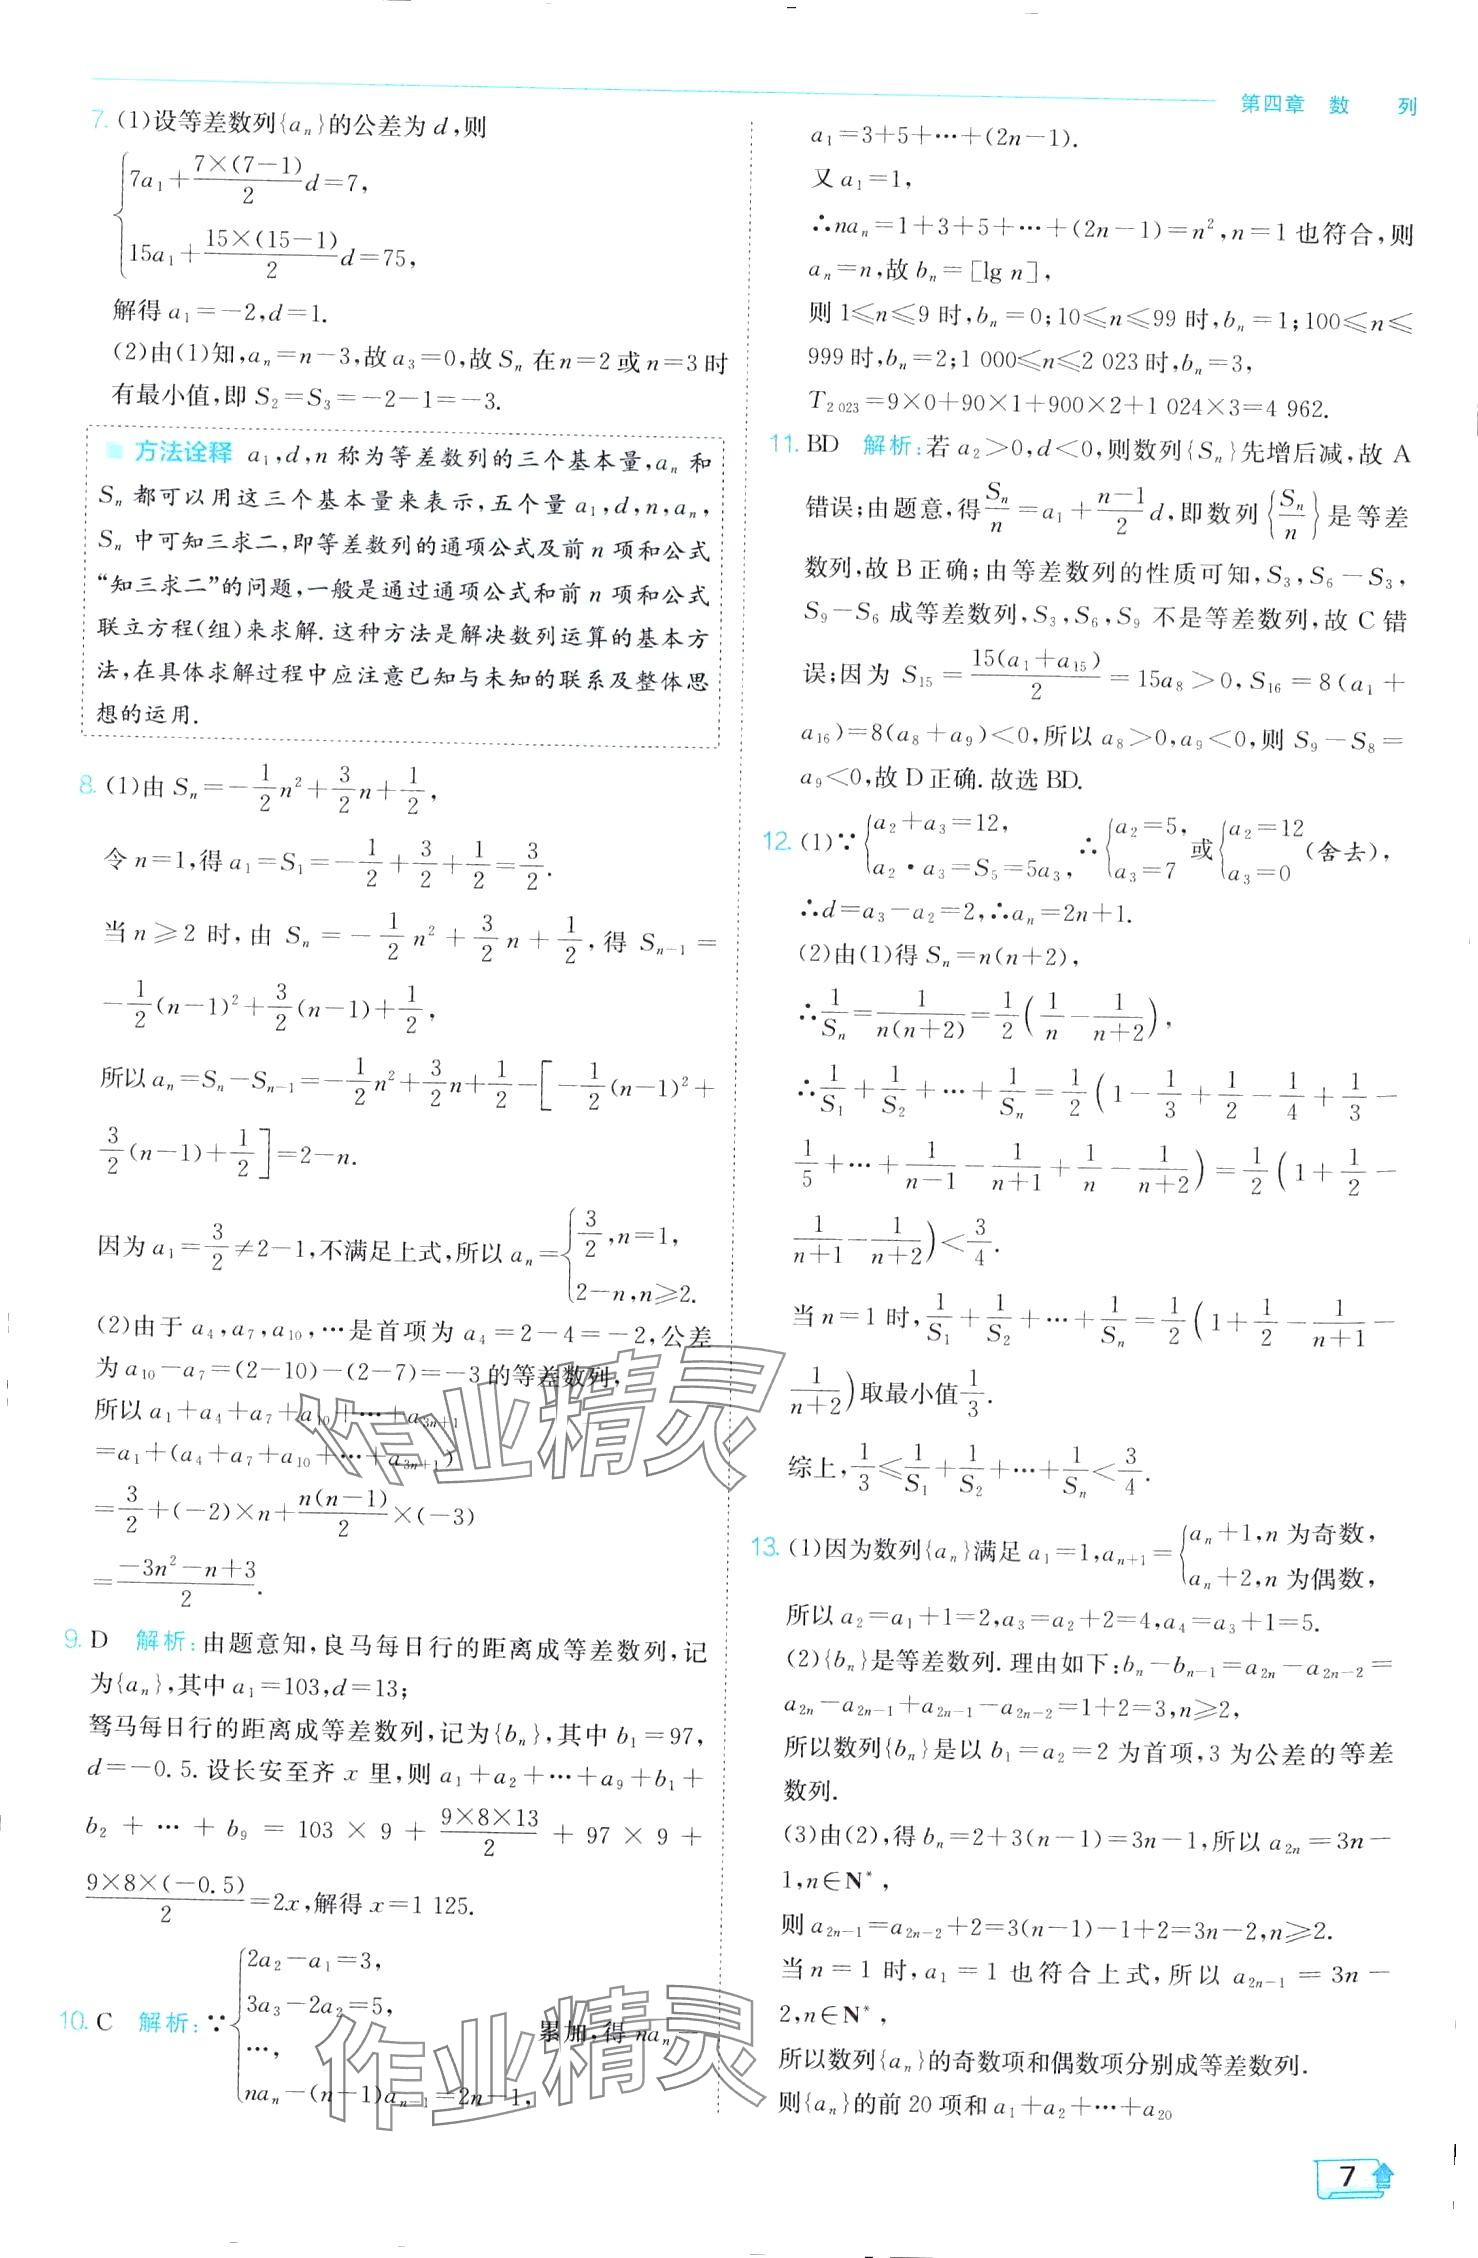 第四章 数 列
7. (1)设等差数列{aₙ}的公差为 d,则
{7a₁+7×(7-1)/2 d=7,
15a₁+15×(15-1)/2 d=75,
解得 a₁=-2,d=1.
(2)由(1)知,aₙ=n-3,故 a₃=0,故 Sₙ 在 n=2 或 n=3 时
有最小值,即 S₂=S₃=-2-1=-3.
方法诠释 a₁,d,n 称为等差数列的三个基本量,aₙ 和
Sₙ 都可以用这三个基本量来表示,五个量 a₁,d,n,aₙ,
Sₙ 中可知三求二,即等差数列的通项公式及前 n 项和公式
“知三求二”的问题,一般是通过通项公式和前 n 项和公式
联立方程(组)来求解.这种方法是解决数列运算的基本方
法,在具体求解过程中应注意已知与未知的联系及整体思
想的运用.
8. (1)由 Sₙ=-1/2 n²+3/2 n+1/2,
令 n=1,得 a₁=S₁=-1/2+3/2+1/2=3/2.
当 n≥2 时,由 Sₙ=-1/2 n²+3/2 n+1/2,得 Sₙ₋₁=
-1/2(n-1)²+3/2(n-1)+1/2,
所以 aₙ=Sₙ-Sₙ₋₁=-1/2 n²+3/2 n+1/2-[-1/2(n-1)²+
3/2(n-1)+1/2]=2-n.
因为 a₁=3/2≠2-1,不满足上式,所以 aₙ={3/2,n=1,
2-n,n≥2.
(2)由于 a₄,a₇,a₁₀,…是首项为 a₄=2-4=-2,公差
为 a₁₀-a₇=(2-10)-(2-7)=-3 的等差数列,
所以 a₁+a₄+a₇+a₁₀+…+a₃ₙ₊₁
=a₁+(a₄+a₇+a₁₀+…+a₃ₙ₊₁)
=3/2+(-2)×n+n(n-1)/2×(-3)
=(-3n²-n+3)/2.
9. D 解析:由题意知,良马每日行的距离成等差数列,记
为{aₙ},其中 a₁=103,d=13;
驽马每日行的距离成等差数列,记为{bₙ},其中 b₁=97,
d=-0.5.设长安至齐 x 里,则 a₁+a₂+…+a₉+b₁+
b₂+…+b₉=103×9+9×8×13/2+97×9+
9×8×(-0.5)/2=2x,解得 x=1 125.
10. C 解析:∵{2a₂-a₁=3,
3a₃-2a₂=5,
…,
naₙ-(n-1)aₙ₋₁=2n-1,
累加,得 naₙ-
a₁=3+5+…+(2n-1).
又 a₁=1,
∴naₙ=1+3+5+…+(2n-1)=n²,n=1 也符合,则
aₙ=n,故 bₙ=[lg n],
则 1≤n≤9 时,bₙ=0;10≤n≤99 时,bₙ=1;100≤n≤
999 时,bₙ=2;1 000≤n≤2 023 时,bₙ=3,
T₂ ₀₂₃=9×0+90×1+900×2+1 024×3=4 962.
11. BD 解析:若 a₂>0,d<0,则数列{Sₙ}先增后减,故 A
错误;由题意,得Sₙ/n=a₁+(n-1)/2 d,即数列{Sₙ/n}是等差
数列,故 B 正确;由等差数列的性质可知,S₃,S₆-S₃,
S₉-S₆ 成等差数列,S₃,S₆,S₉ 不是等差数列,故 C 错
误;因为 S₁₅=15(a₁+a₁₅)/2=15a₈>0,S₁₆=8(a₁+
a₁₆)=8(a₈+a₉)<0,所以 a₈>0,a₉<0,则 S₉-S₈=
a₉<0,故 D 正确.故选 BD.
12. (1)∵{a₂+a₃=12,
a₂·a₃=S₅=5a₃, ∴{a₂=5,
a₃=7 或{a₂=12
a₃=0 (舍去),
∴d=a₃-a₂=2,∴aₙ=2n+1.
(2)由(1)得 Sₙ=n(n+2),
∴1/Sₙ=1/n(n+2)=1/2(1/n-1/(n+2)),
∴1/S₁+1/S₂+…+1/Sₙ=1/2(1-1/3+1/2-1/4+1/3-
1/5+…+1/(n-1)-1/(n+1)+1/n-1/(n+2))=1/2(1+1/2-
1/(n+1)-1/(n+2))<3/4.
当 n=1 时,1/S₁+1/S₂+…+1/Sₙ=1/2(1+1/2-1/(n+1)-
1/(n+2))取最小值1/3.
综上,1/3≤1/S₁+1/S₂+…+1/Sₙ<3/4.
13. (1)因为数列{aₙ}满足 a₁=1,aₙ₊₁={aₙ+1,n 为奇数,
aₙ+2,n 为偶数,
所以 a₂=a₁+1=2,a₃=a₂+2=4,a₄=a₃+1=5.
(2){bₙ}是等差数列.理由如下:bₙ-bₙ₋₁=a₂ₙ-a₂ₙ₋₂=
a₂ₙ-a₂ₙ₋₁+a₂ₙ₋₁-a₂ₙ₋₂=1+2=3,n≥2,
所以数列{bₙ}是以 b₁=a₂=2 为首项,3 为公差的等差
数列.
(3)由(2),得 bₙ=2+3(n-1)=3n-1,所以 a₂ₙ=3n-
1,n∈N*,
则 a₂ₙ₋₁=a₂ₙ₋₂+2=3(n-1)-1+2=3n-2,n≥2.
当 n=1 时,a₁=1 也符合上式,所以 a₂ₙ₋₁=3n-
2,n∈N*,
所以数列{aₙ}的奇数项和偶数项分别成等差数列.
则{aₙ}的前 20 项和 a₁+a₂+…+a₂₀
作业精灵
作业精灵
7